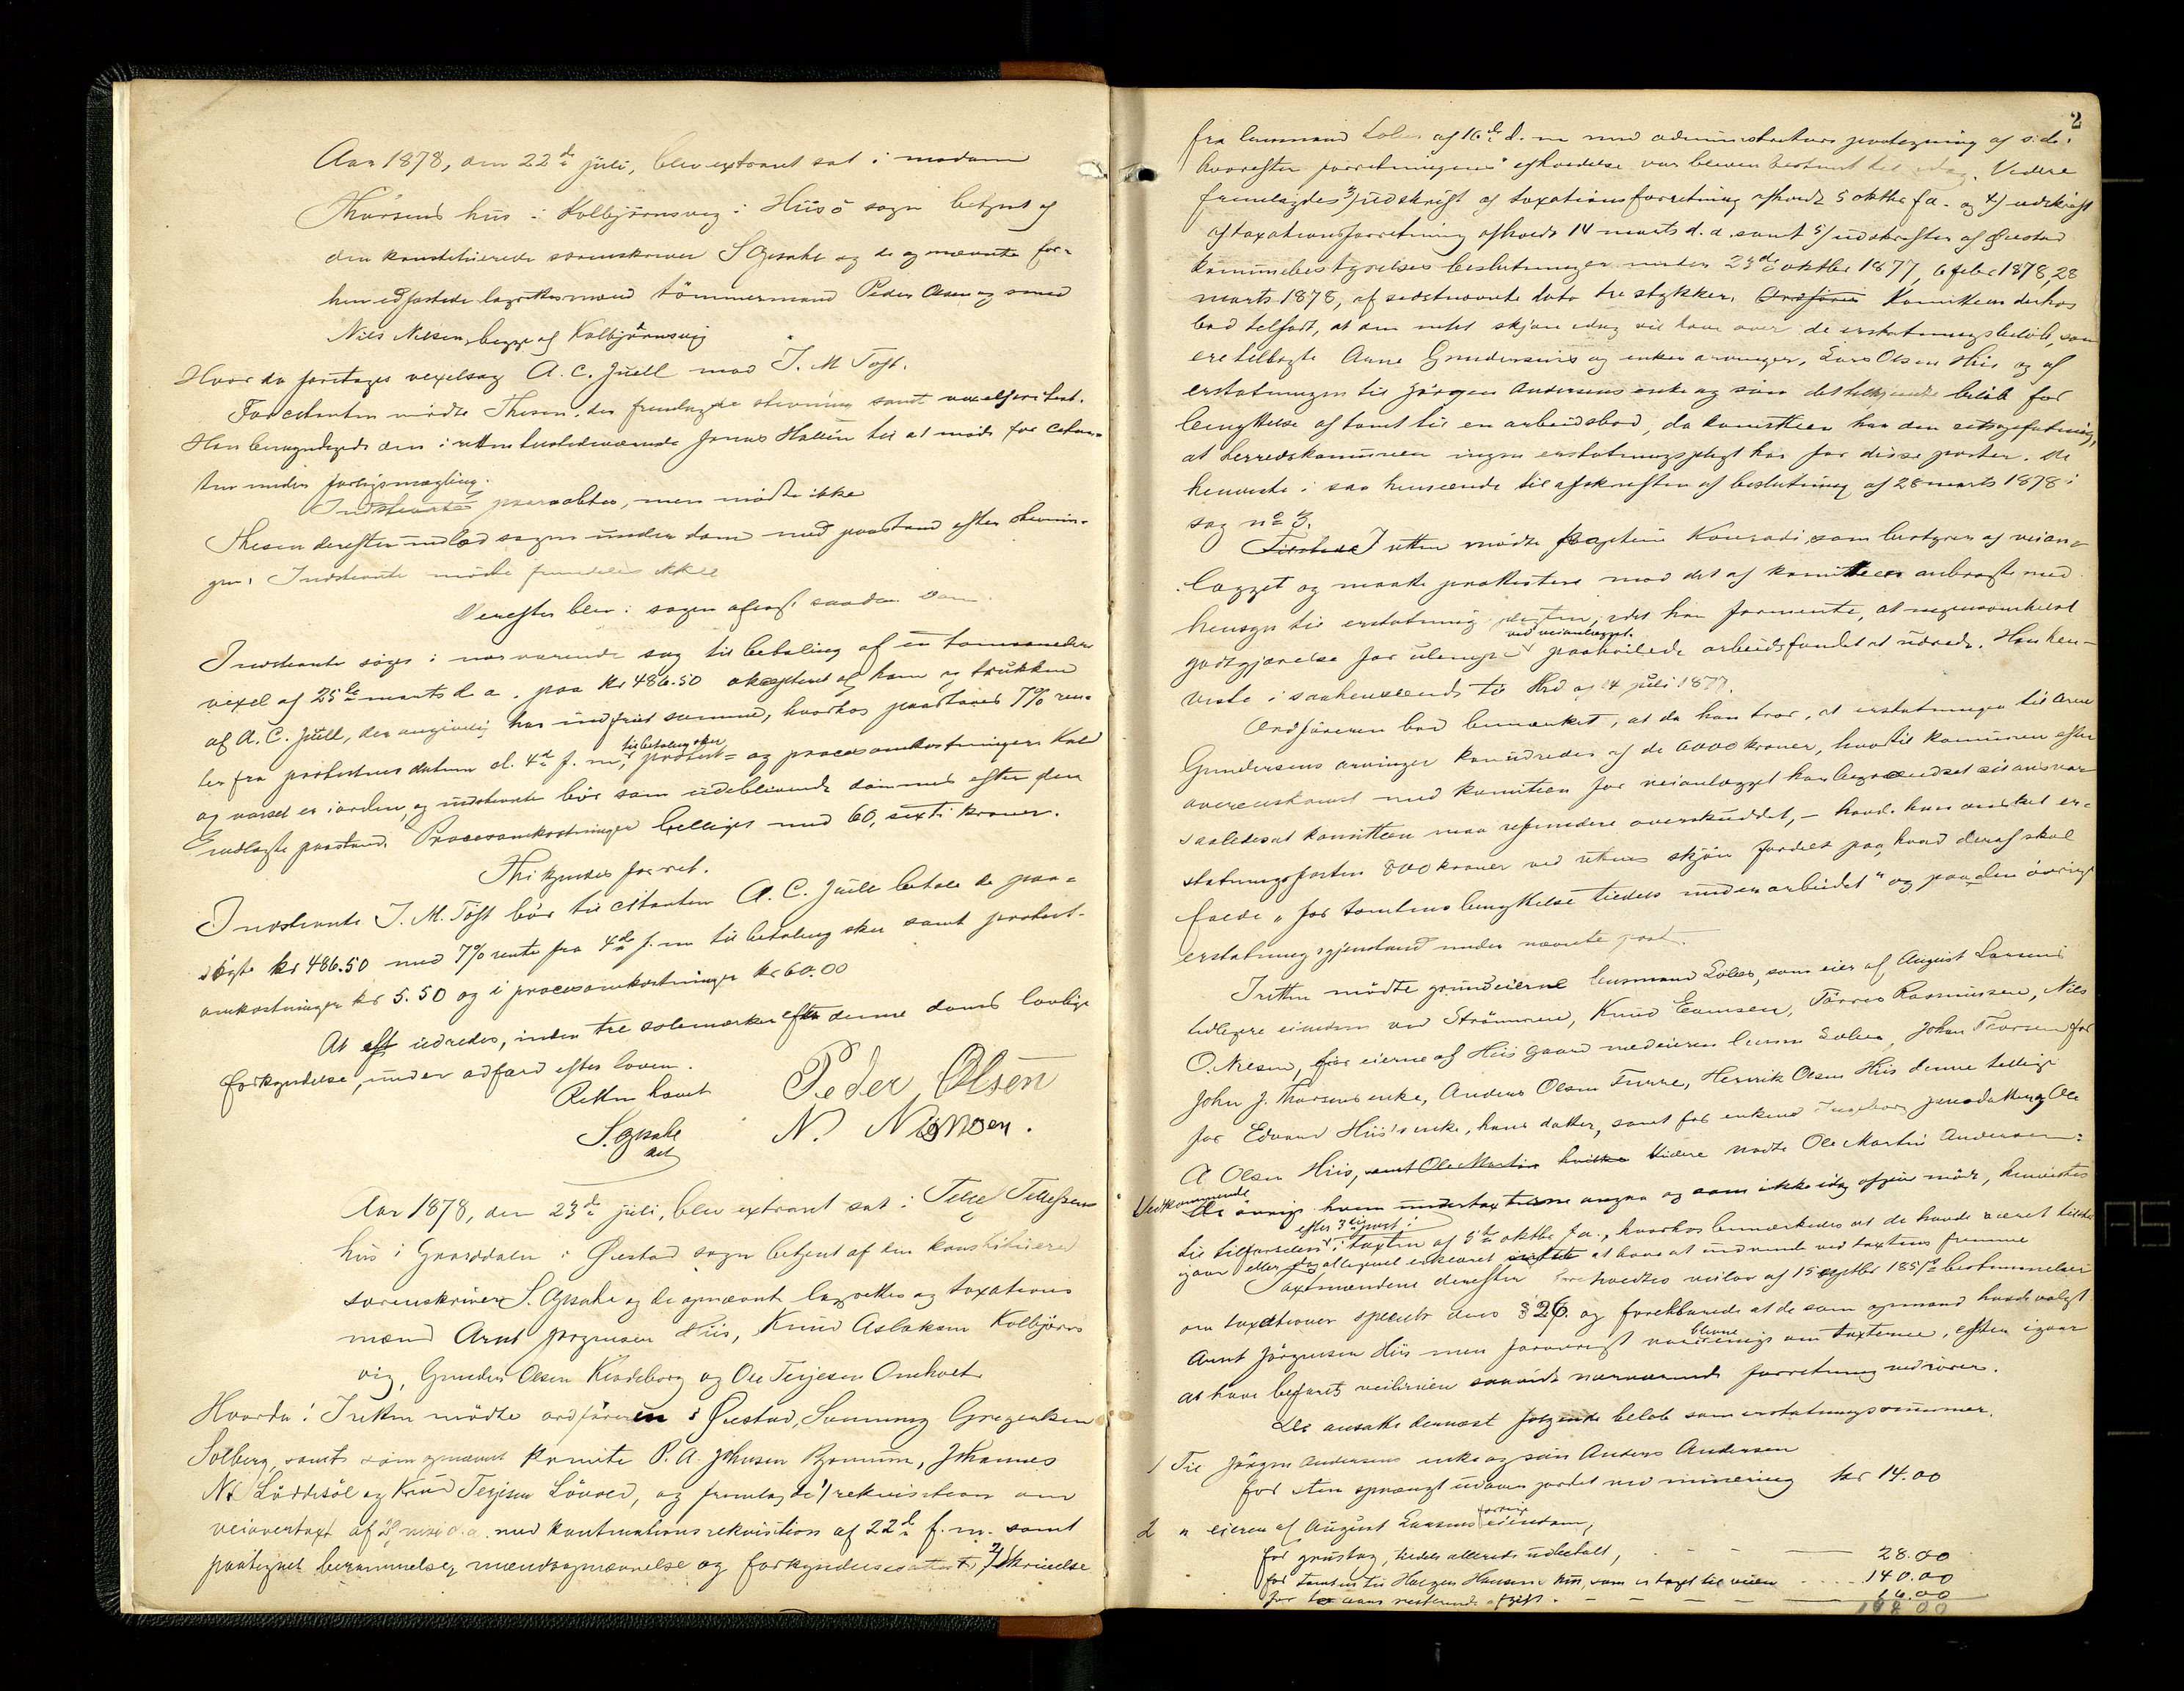 Aar 1878, den 22de juli, blev extraret sat i madam
Thorsens hus i Kolbjörnsvig i Hisö sogn betjent af
den konstituerede sorenskriver S Gjsahl og de opnævnte for-
hen edfæstede lagrettesmænd tömmermand Peder Olsen og smed
Nils Nilsen, begge af Kolbjörnsvig
Hvor da foretoges vexelsag A. C. Juell mod J. M Toft.
For citanten mödte Thesen, der fremlagde stevning samt vexelprotest.
Han bemyndigede den i retten tilstedeværende Jonas Hallén til at möde for citan-
ten under forligsmægling.
Indstevnte paaraabtes, men mödte ikke
Thesen derefter indlod sagen under dom med paastand efter stevnin-
gen. Indstevnte mödte fremdeles ikke
Derefter blev i sagen afsagt saadan Dom.
Indstevnte söges i nærværende sag til betaling af en tomaaneders
vexel af 25de marts d. a. paa kr 486.50 akcepteret af ham og trukken
af A. C. Juell, der angivelig har indfriet samme, hvorhos paastaaes 7% ren-
ter fra protestens datum d. 4de f. m, til betaling sker protest- og procesomkostninger. Kald
og varsel er i orden, og indstevnte bör som udeblivende dömmes efter den
fremlagte paastand. Procesomkostninger billiges med 60, sexti kroner.
Thi kjendes for ret.
Indstevnte J. M. Toft bör til citanten A. C. Juell betale de paa-
sögte kr 486.50 med 7% rente fra 4de f. m til betaling sker samt protest-
omkostninger kr 5.50 og i procesomkostninger kr 60.00
At eft udredes, inden tre solemærker efter denne doms lovlige
forkyndelse, under adfærd efter loven.
Retten hævet Peder Olsen
S. Gjsahl N. Nilsen.
set
Aar 1878, den 23de juli, blev extraret sat i Telle Tellefsens
hus i Graaddalen i Öiestad sogn betjent af den konstituerede
sorenskriver S. Gjsahl og de opnævnte lagrettes og taxations
mænd Arnt Jörgensen Hiis, Knud Aslaksen Kolbjörns
vig, Gunder Olsen Kindeborg og Ole Terjesen Omholt
Hvorda! I retten mödte ordföreren i Öiestad, Sommung Gregersen
Solberg, samt som opnævnt komite P. A. Johnsen Rommen, Johannes
N. Löddesöl og Knud Terjesen Lövold, og fremlagde 1/ rekvisition om
veiovertaxt af 28 mai d. a. med kontinuationsrekvisition af 22de f. m. samt
paategnet berammelse, mændsopnævnelse og forkyndelsesattest, 2/ Skrivelse
2
fra lensmand Lølas af 16de d. m med administrators paategning af s. d.
hvorefter forretningens afholdelse var bleven bestemt til idag. Videre
fremlagdes 3/ udskrift af taxationsforretning afholdt 5 oktbr f. a. og 4/ udskrift
af taxationsforretning afholdt 14 marts d. a. samt 5/ udskrifter af Öiestad
kommunebestyrelses beslutninger under 23de oktbr 1877, 6 febr 1878, 28
marts 1878, af sidstnævnte dato tre stykker. Ordföreren Komiteen derhos
bad tilfört, at den intet skjön idag vil have over de erstatningsbelöb, som
ere tillagte Anne Gundersens og enkes arvinger, Lars Olsen Hiis og af
erstatningen til Jörgen Andersens enke og sön det tilkjendte belöb for
benyttelse af tomt til en arbeidsbod, da komiteen har den retsopfatning,
at herredskommunen ingen erstatningspligt har for disse poster. De
henviste i saa henseende til afskriften af beslutning af 28 marts 1878 i
sag no 3.
Tilstede I retten mödte kaptein Konradi som bestyrer af veian-
lægget og maatte protestere mod det af komiteen anbragte med
hensyn til erstatning pligten, idet han formente, at nogensomhelst
godtgjörelse for ulempe ved veianlægget paahvilede arbeidsfondet at udrede. Han hen-
viste i saa henseende til Hrd af 14 juli 1877.
Ordföreren bad bemærket, at da han tror, at erstatningen til Anne
Gundersens arvinger kan udredes af de 6000 kroner, hvortil kommunen efter
overenskomst med komiteen for veianlægget har begrændset sit ansvar
saaledes at komiteen maa refundere overskuddet, - havde han önsket er-
statningsposten 800 kroner ved rettens skjön fordelt paa, hvad deraf skal
falde "for tomtens benyttelse tildels under arbeidet" og paa den övrige
erstatningsgjenstand under nævnte post.
I retten mödte grundeierne lensmand Lølas, som eier af August Larsens
tidligere eiendom ved Strömmen, Knud Evensen, Törres Rasmussen, Niels
O. Nielsen, for eierne af Hiis gaard medeieren lensm Lølas, Johan Thorsen for
John J. Thorsens enke, Anders Olsen Furre, Henrik Olsen Hiis denne tillige
for Edvard Hiis's enke, hans datter, samt for enkene Ingeborg Jensdatter og Ole
A Olsen Hiis, samt Ole Martin hvilke Videre mödte Ole Martin Andersen:
Vedkommende
De övrige hvem undertaxterne angaa og som ikke idag afgiver möde, henvistes
til tilförselen efter 3die post i i taxten af 5te oktbr f. a., hvorhos bemærkedes at de havde været tilstede
igaar eller dog alligevel erklæret sig tilst at have at indvende ved taxtens fremme
Taxtmændene derefter foreholdtes veilov af 15 septbr 1851s bestemmelser
om taxationer specielt dens § 26. og forklarede at de som opmand havde valgt
Arnt Jörgensen Hiis men forövrigt vare blevne enige om taxterne, efter igaar
at have befaret veilinien saavidt nærværende forretning vedrörer.
De ansatte dernæst fölgende belöb som erstatningssummer.
1 Til Jörgen Andersens enke og sön Anders Andersen
for sten sprængt udover jordet ved minering kr 14.00
2 " eieren af August Larsens forrige eiendom,
for grustag, tildels allerede udbetalt, 28.00
for tomten til Halvgen Hansens hus, som er taget til veien 140.00
for to aars resterende afgift. 16.00